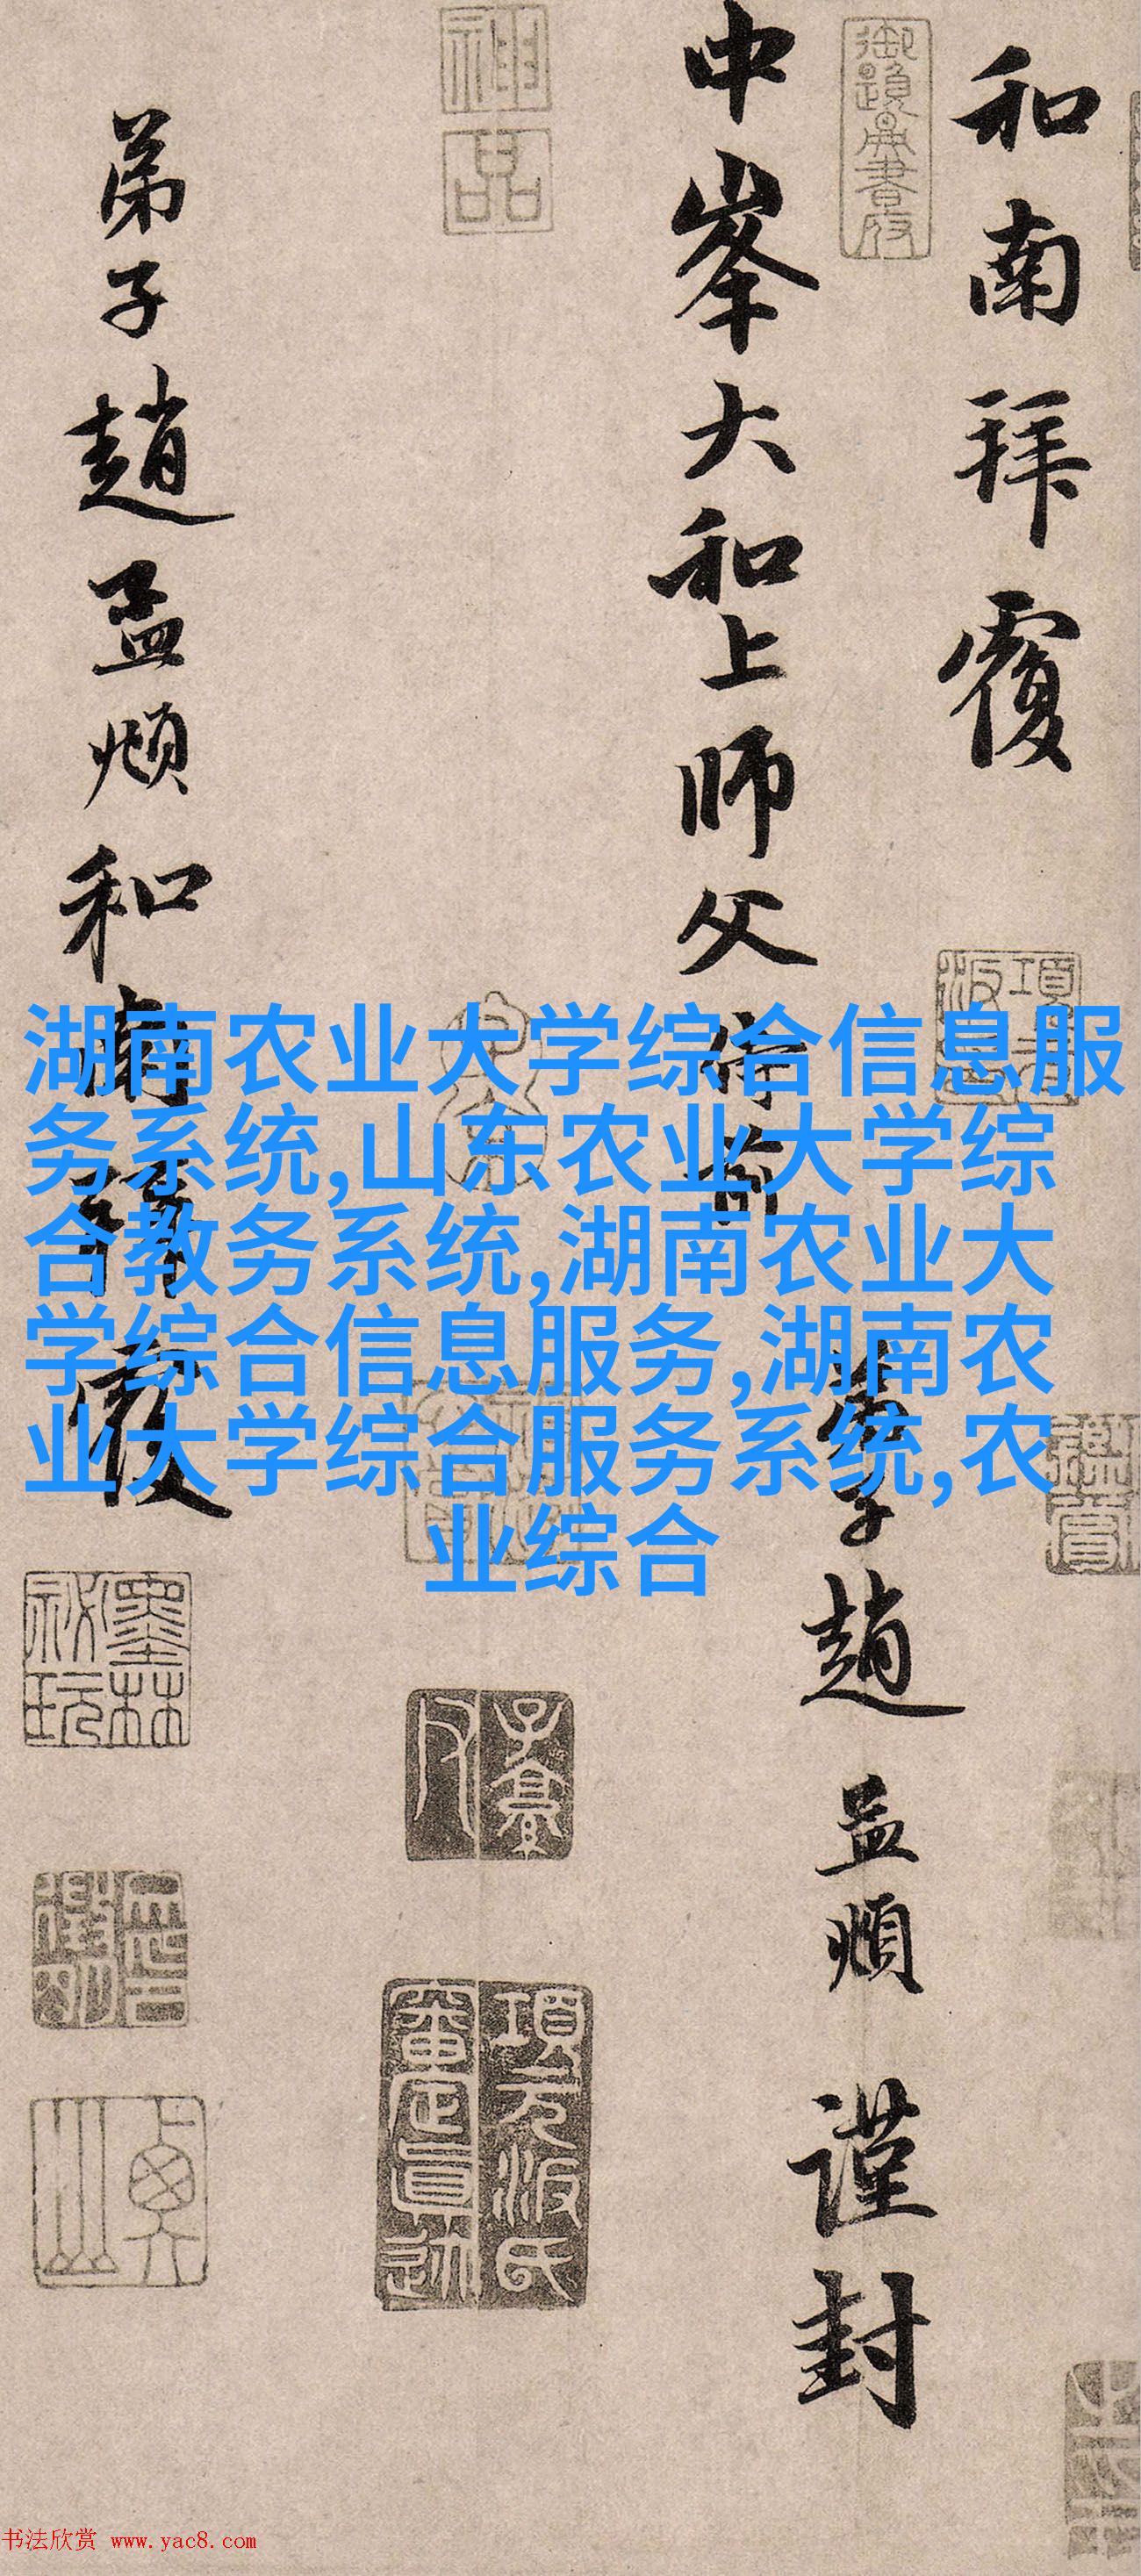 和南拜覆
中峯大和上師父侍前
弟子趙孟頫謹封
弟子趙孟頫和南謹覆
神品
墨林秘玩
項元汴氏審定真跡
湖南农业大学综合信息服
务系统,山东农业大学综
合教务系统,湖南农业大
学综合信息服务,湖南农
业大学综合服务系统,农
业综合
书法欣赏 www.yac8.com